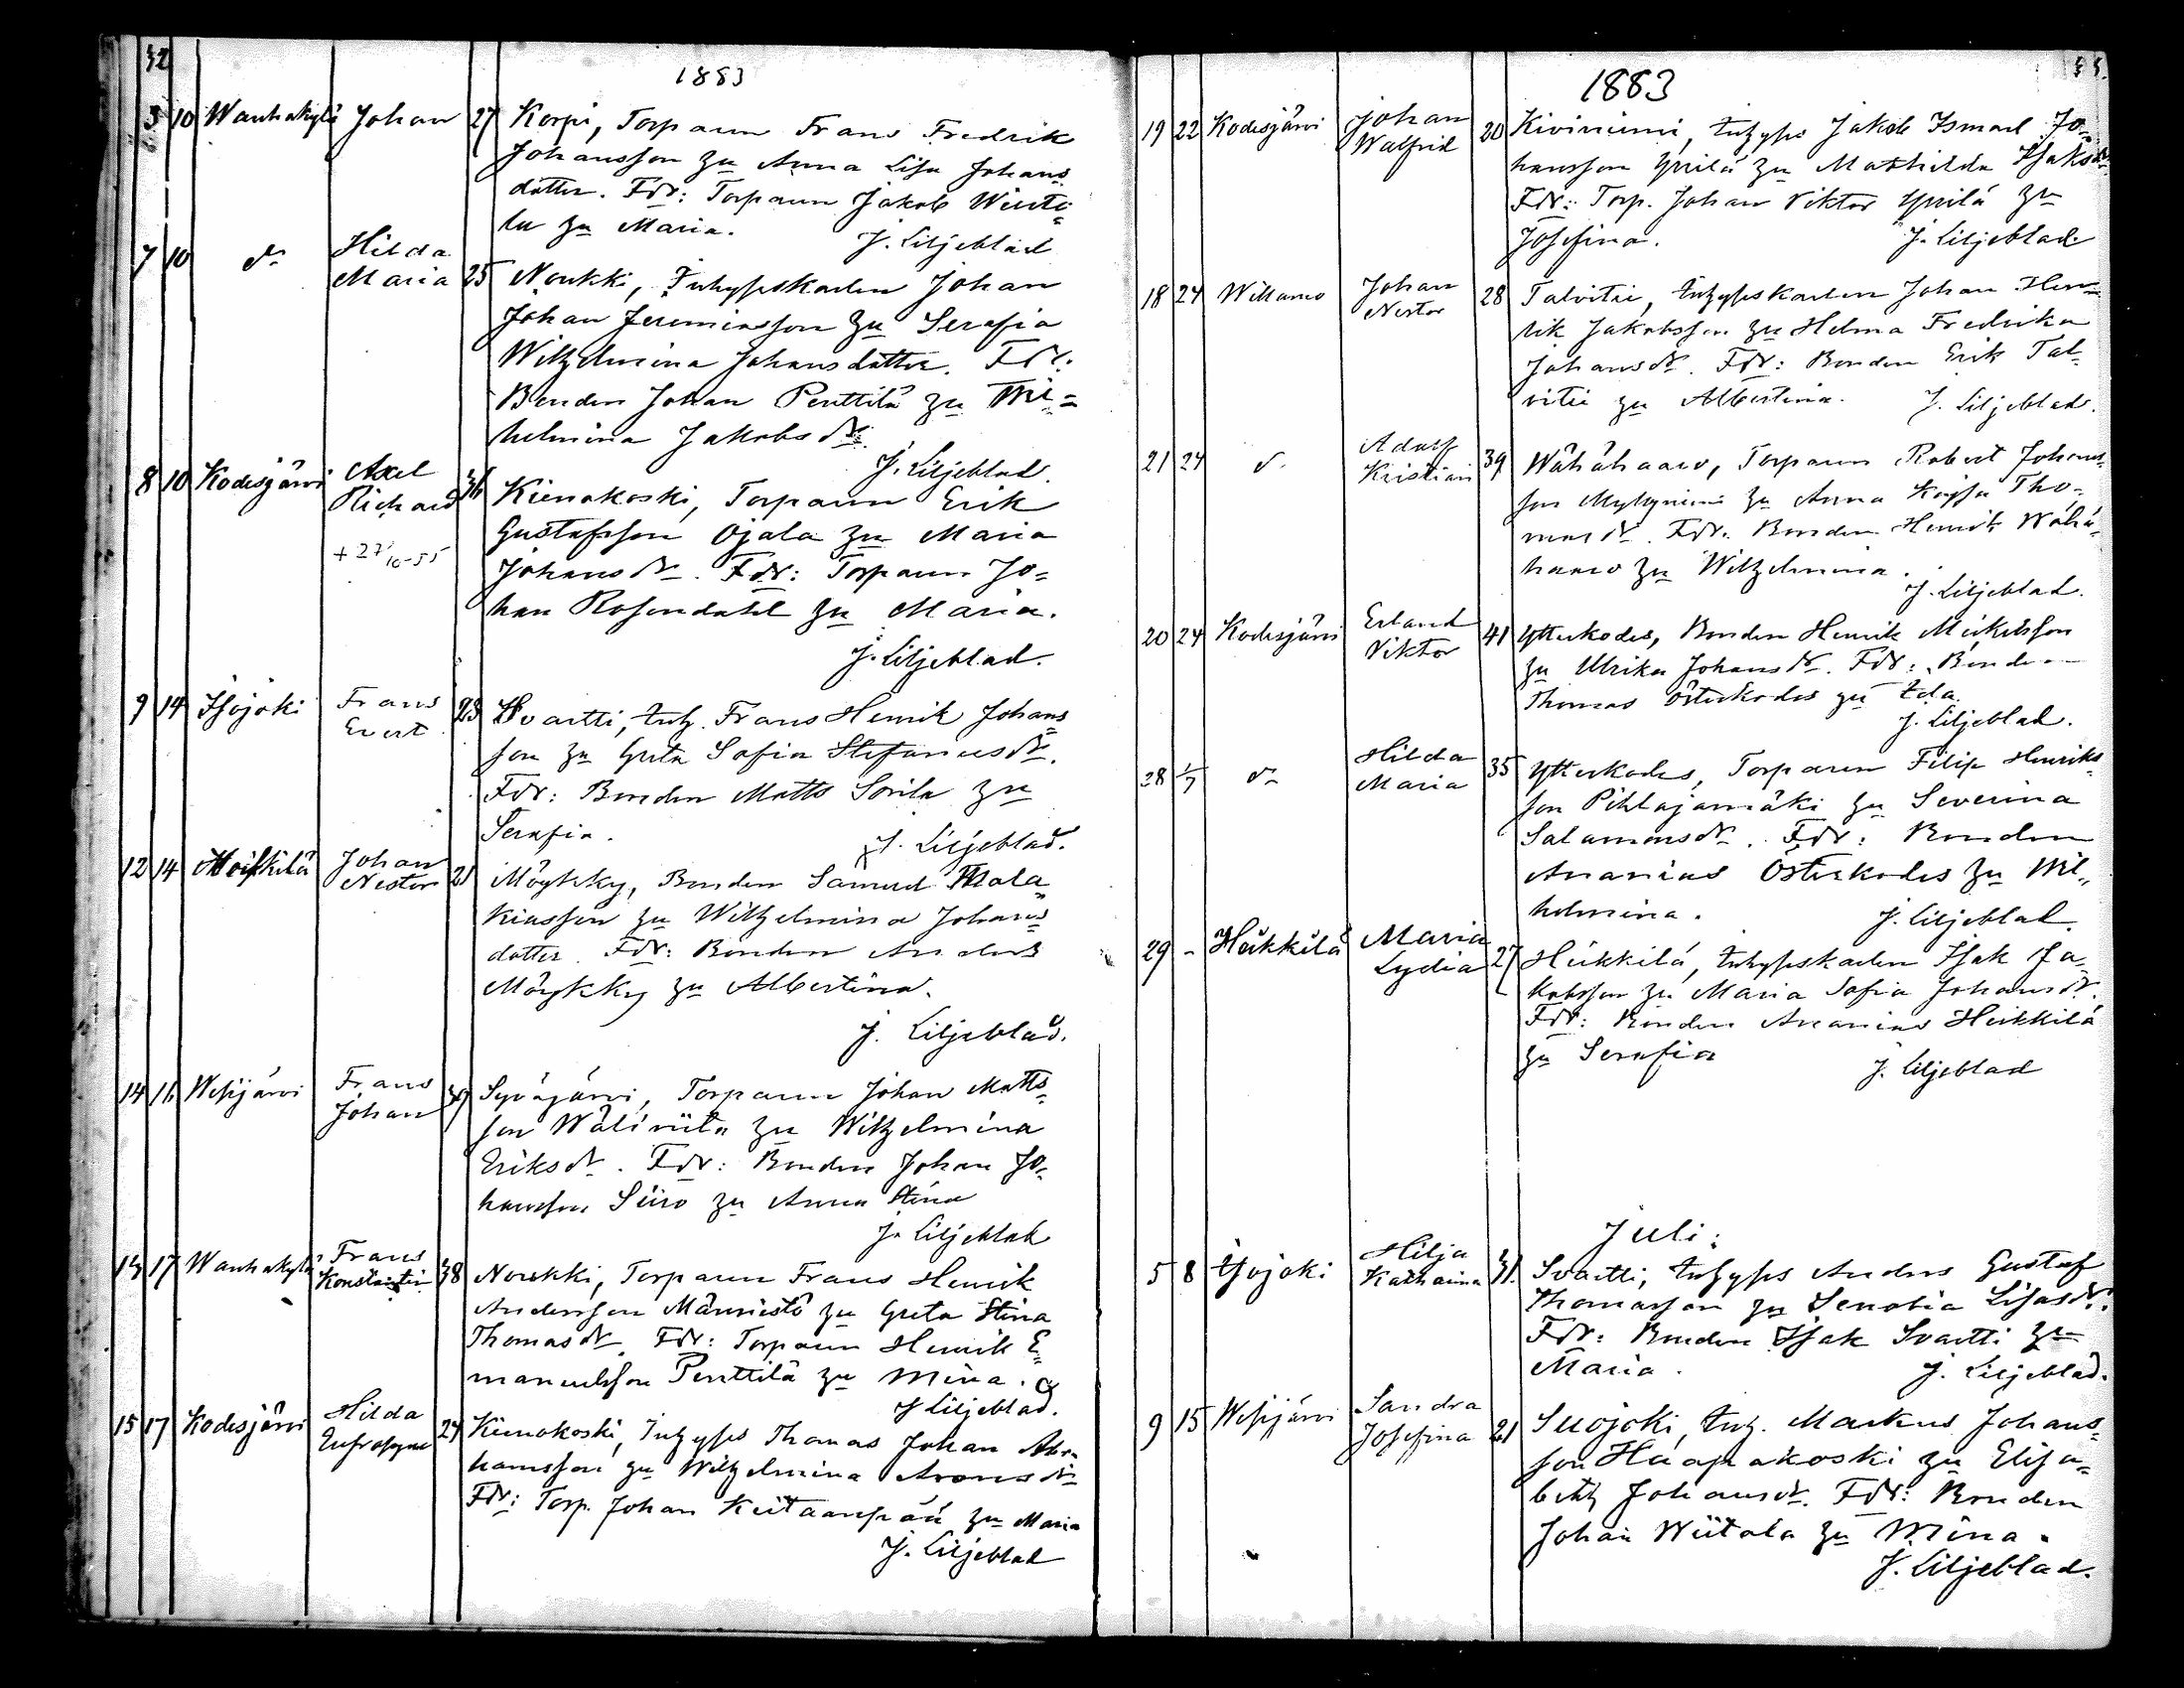 32
1883
3 10 Wanhakylä Johan 27 Korpi, Torparen Frans Fredrik
Johansson zu Anna Lisa Johans=
dotter. Fdr: Torparen Jakob Wiita=
la zu Maria.
J. Liljeblad
7 10 d:o Hilda Maria 25 Norkki, Inhyseskarlen Johan
Johan Jeremiasson zu Serafia
Wilhelmina Johansdotter. Fdr:
Bonden Johan Penttilä zu Wil=
helmina Jakobsdr.
J. Liljeblad.
8 10 Kodesjärvi Axel Richard 36 Kienokoski, Torparen Erik
+ 27/10-55
Gustafsson Ojala zu Maria
Johansdr. Fdr: Torparen Jo=
han Rosendahl zu Maria.
J. Liljeblad.
9 14 Isojoki Frans Evert 23 Svartti, Inh. Frans Henrik Johans=
son zu Greta Sofia Stefanusdr.
Fdr: Bonden Matts Sorila zu
Serafia.
J. Liljeblad.
12 14 Möykkylä Johan Nestor 21 Möykky, Bonden Samuel Mala=
kiasson zu Wilhelmina Johans=
dotter. Fdr: Bonden Anders
Möykky zu Albertina.
J. Liljeblad.
14 16 Wesijärvi Frans Johan 39 Syväjärvi, Torparen Johan Matts=
son Wäliniita zu Wilhelmina
Eriksdr. Fdr: Bonden Johan Jo=
hansson Siiro zu Anna Stina
J. Liljeblad
13 17 Wanhakylä Frans Konstantin 38 Norkki, Torparen Frans Henrik
Andersson Männistö zu Greta Stina
Thomasdr. Fdr: Torparen Henrik E=
manuelsson Penttilä zu Mina.
J Liljeblad.
15 17 Kodesjärvi Hilda Eufrosyne 24 Kienokoski, Inhyses Thomas Johan Abra=
hamsson zu Wilhelmina Aronsdr
Fdr: Torp. Johan Keitaanpää zu Maria
J. Liljeblad
1883
19 22 Kodesjärvi Johan Walfrid 20 Kiviniemi, Inhyses Jakob Ismael Jo=
hansson Yrilä zu Mathilda Isaksdr
Fdr: Torp. Johan Viktor Yrilä zu
Josefina.
J. Liljeblad.
18 24 Willamo Johan Nestor 28 Talvitie, Inhyseskarlen Johan Hen=
rik Jakobsson zu Helma Fredrika
Johansdr. Fdr: Bonden Erik Tal=
vitie zu Albertina.
J. Liljeblad.
21 24 d:o Adolf Kristian 39 Wähähaaro, Torparen Robert Johans=
son Myllyniemi zu Anna Kajsa Tho=
masdr. Fdr. Bonden Henrik Wähä=
haaro zu Wilhelmina.
J. Liljeblad.
20 24 Kodesjärvi Erland Viktor 41 Ytterkodes, Bonden Henrik Mickelsson
zu Ulrika Johansdr. Fdr: Bonden
Thomas Österkodes zu Eda.
J. Liljeblad.
28 1/7 d:o Hilda Maria 35 Ytterkodes, Torparen Filip Henriks=
son Pihlajamäki zu Severina
Salamonsdr. Fdr: Bonden
Ananias Österkodes zu Wil=
helmina.
J. Liljeblad.
29 - Heikkilä Maria Lydia 27 Heikkilä, Inhyseskarlen Isak Ja=
kobsson zu Maria Sofia Johansdr.
Fdr: Bonden Ananias Heikkilä
zu Serafia
J. Liljeblad
Juli:
5 8 Isojoki Hilja Katharina 31. Svartti, Inhyses Anders Gustaf
Thomasson zu Senobia Lisasdr.
Fdr: Bonden Isak Svartti zu
Maria.
J. Liljeblad.
9 15 Wesijärvi Sandra Josefina 21 Suojoki, Inh. Markus Johans=
son Haapakoski zu Elisa=
beth Johansdr. Fdr: Bonden
Johan Wiitala zu Mina.
J. Liljeblad.